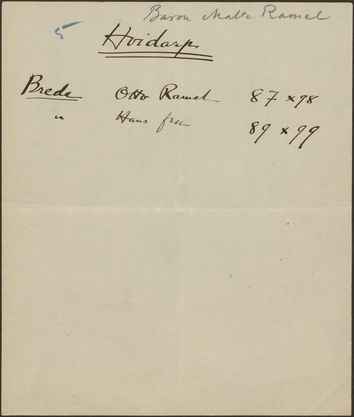 Baron Malte Ramel
5
Hvidarp
Breda Otto Ramel 87 x 98
" Hans fru 89 x 99